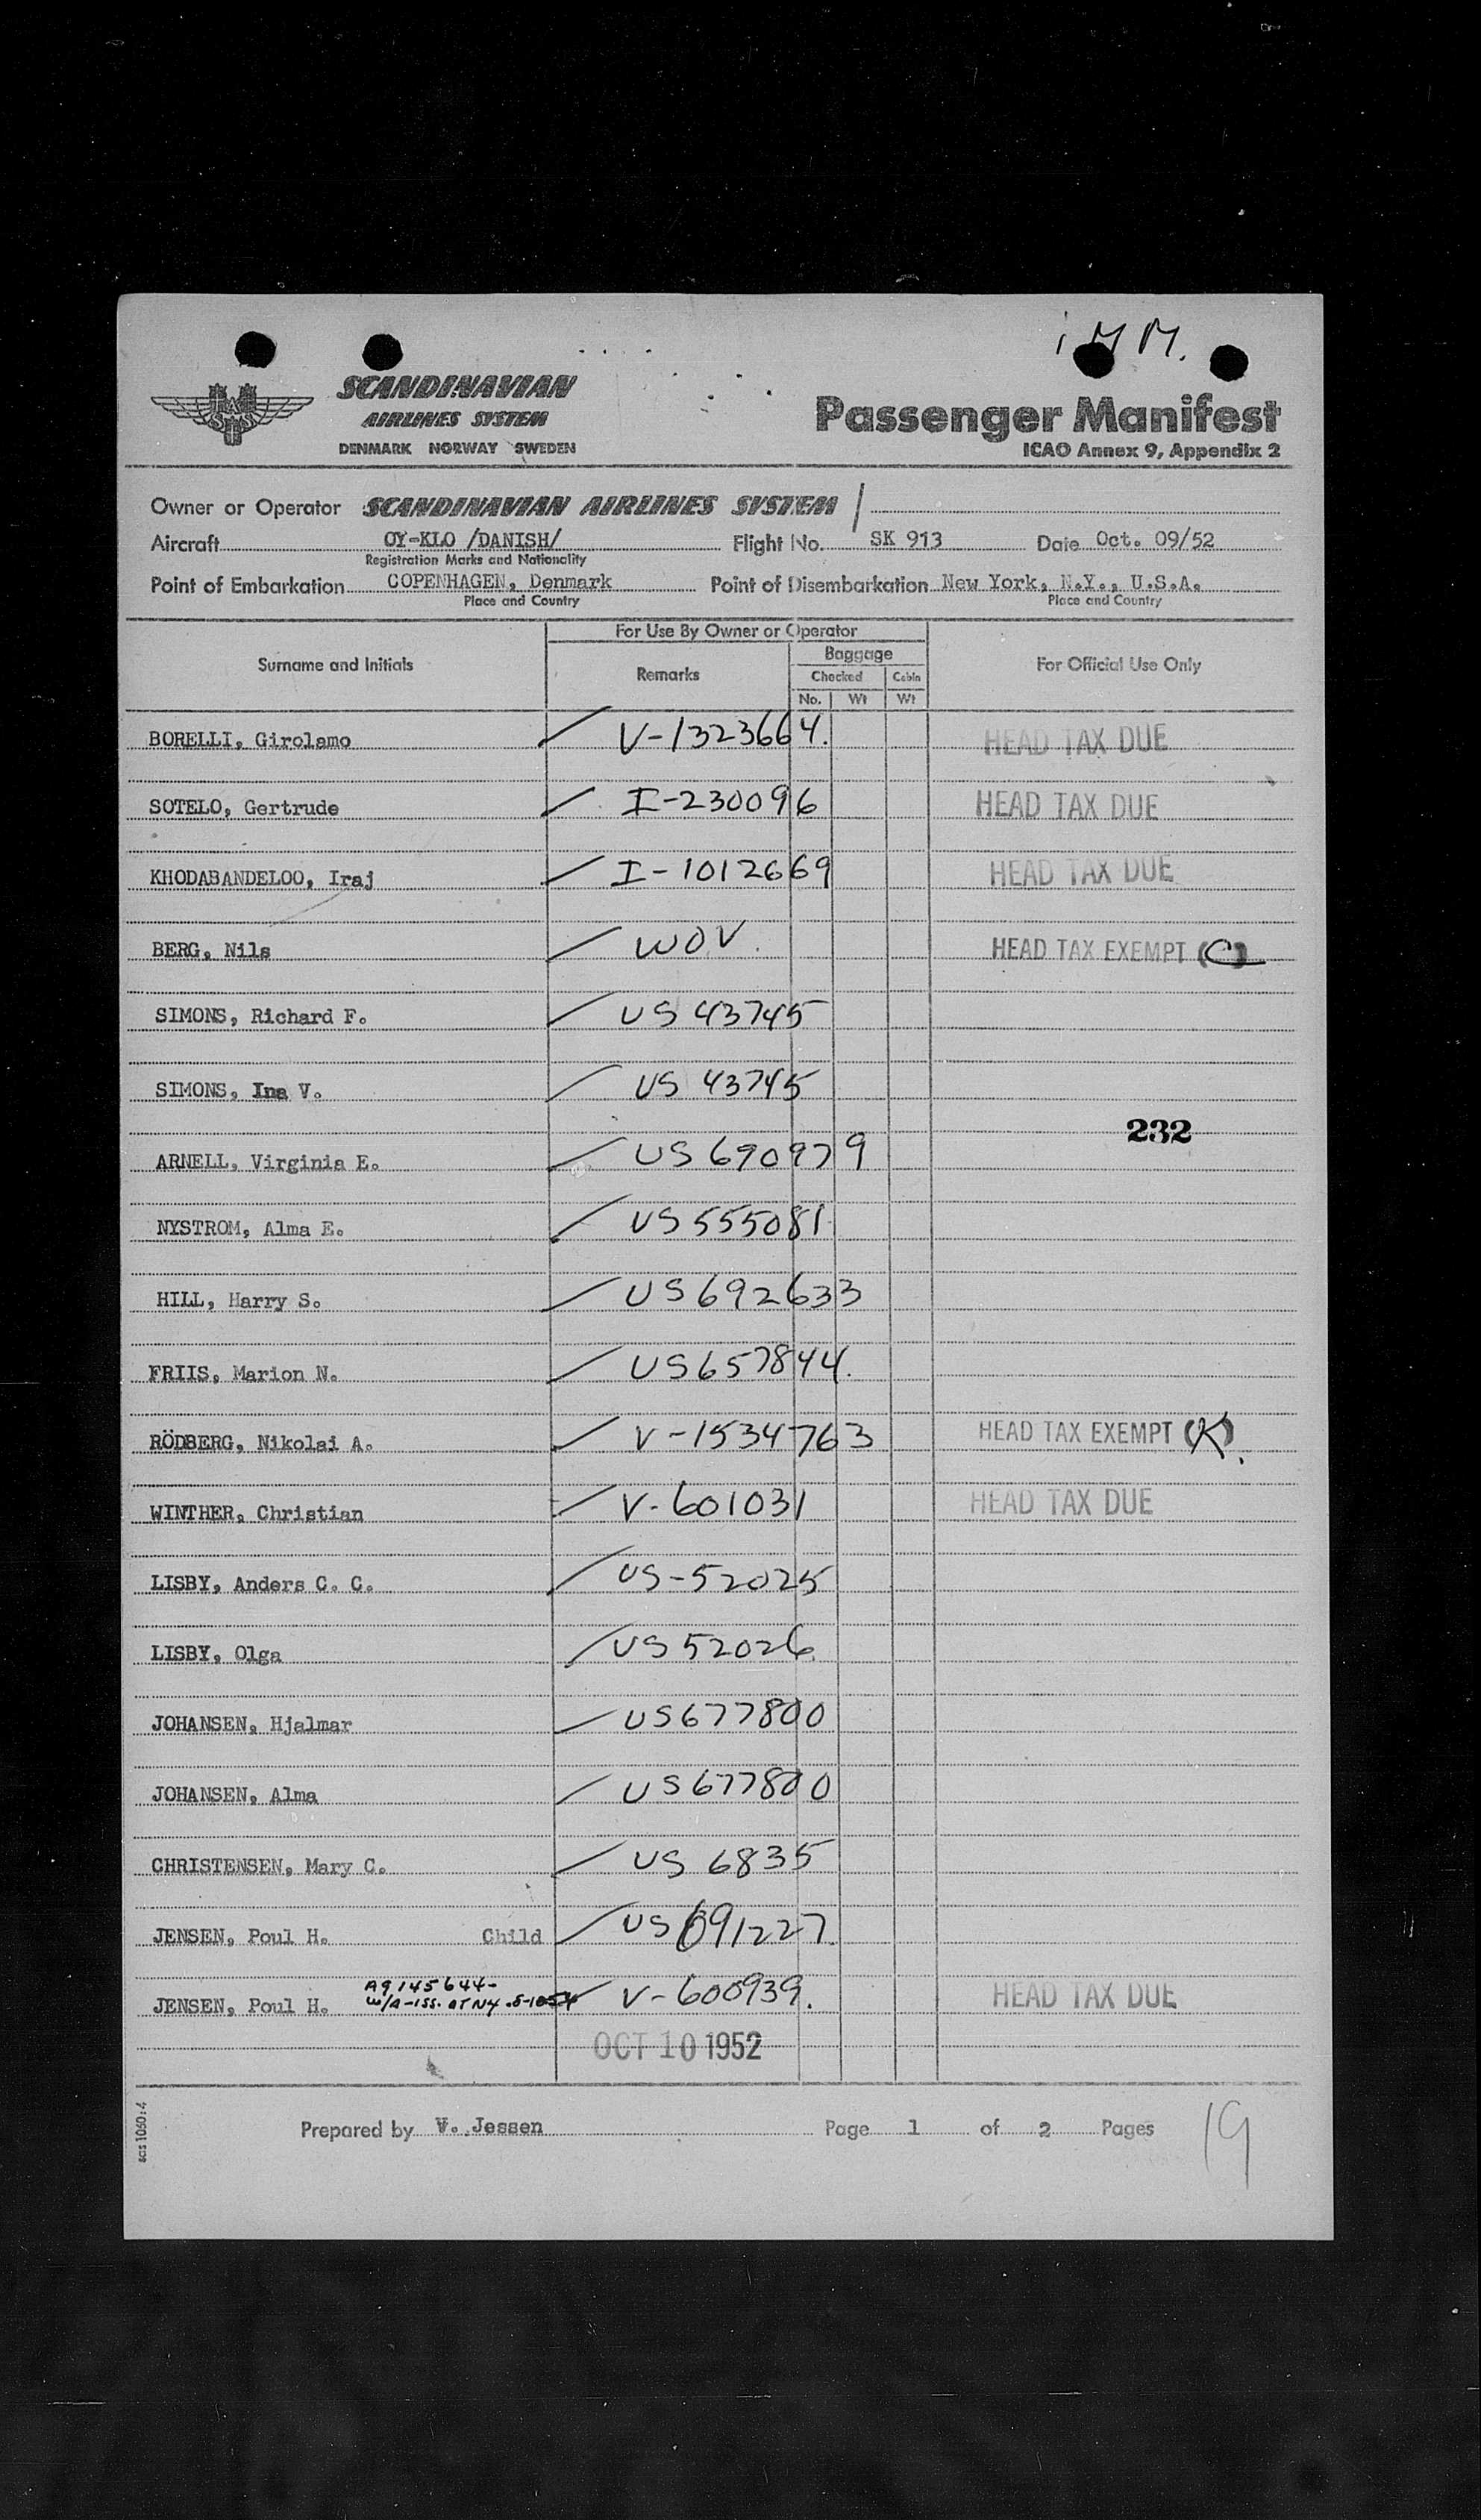 i M M.
SCANDINAVIAN
AIRLINES SYSTEM
DENMARK NORWAY SWEDEN
Passenger Manifest
ICAO Annex 9, Appendix 2
Owner or Operator SCANDINAVIAN AIRLINES SYSTEM /
Aircraft OY-KLO /DANISH/ Flight No. SK 913 Date Oct. 09/52
Registration Marks and Nationality
Point of Embarkation COPENHAGEN, Denmark Point of Disembarkation New York, N.Y., U.S.A.
Place and Country Place and Country
For Use By Owner or Operator
Surname and Initials Remarks Baggage For Official Use Only
Checked Cabin
No. Wt Wt
BORELLI, Girolamo V-1323664. HEAD TAX DUE
SOTELO, Gertrude I-230096 HEAD TAX DUE
KHODABANDELOO, Iraj I-1012669 HEAD TAX DUE
BERG, Nils WOV. HEAD TAX EXEMPT (C)
SIMONS, Richard F. US 43745
SIMONS, Ina V. US 43745
232
ARNELL, Virginia E. US 690979
NYSTROM, Alma E. US 555081
HILL, Harry S. US 692633
FRIIS, Marion N. US 657844.
RÖDBERG, Nikolai A. V-1534763 HEAD TAX EXEMPT (K).
WINTHER, Christian V-601031 HEAD TAX DUE
LISBY, Anders C. C. US-52025
LISBY, Olga US 52026
JOHANSEN, Hjalmar US 677800
JOHANSEN, Alma US 677800
CHRISTENSEN, Mary C. US 6835
JENSEN, Poul H. Child US 691227
A9145644-
JENSEN, Poul H. W/A-ISS. AT NY V-600939. HEAD TAX DUE
OCT 10 1952
sas 1060:4
Prepared by V. Jessen Page 1 of 2 Pages
19